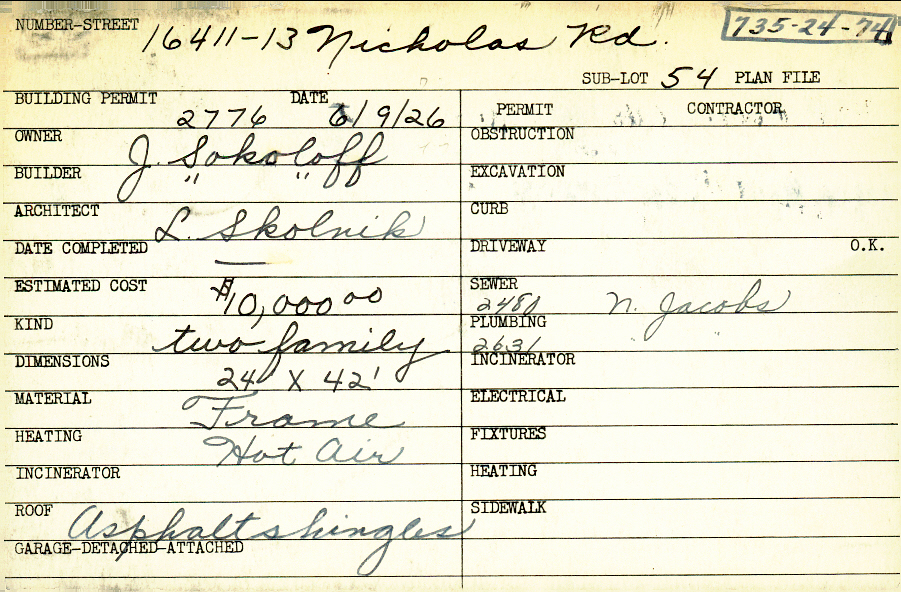 NUMBER-STREET 16411-13 Nicholas Rd. 735-24-74
SUB-LOT 54 PLAN FILE
BUILDING PERMIT 2776 DATE 6/9/26
OWNER J. Sokoloff
BUILDER " "
ARCHITECT L. Skolnik
DATE COMPLETED —
ESTIMATED COST $10,000 00
KIND two family
DIMENSIONS 24 X 42'
MATERIAL Frame
HEATING Hot Air
INCINERATOR
ROOF Asphalt shingles
GARAGE-DETACHED-ATTACHED
PERMIT CONTRACTOR
OBSTRUCTION
EXCAVATION
CURB
DRIVEWAY O.K.
SEWER 2480 N. Jacobs
PLUMBING 2631 " "
INCINERATOR
ELECTRICAL
FIXTURES
HEATING
SIDEWALK